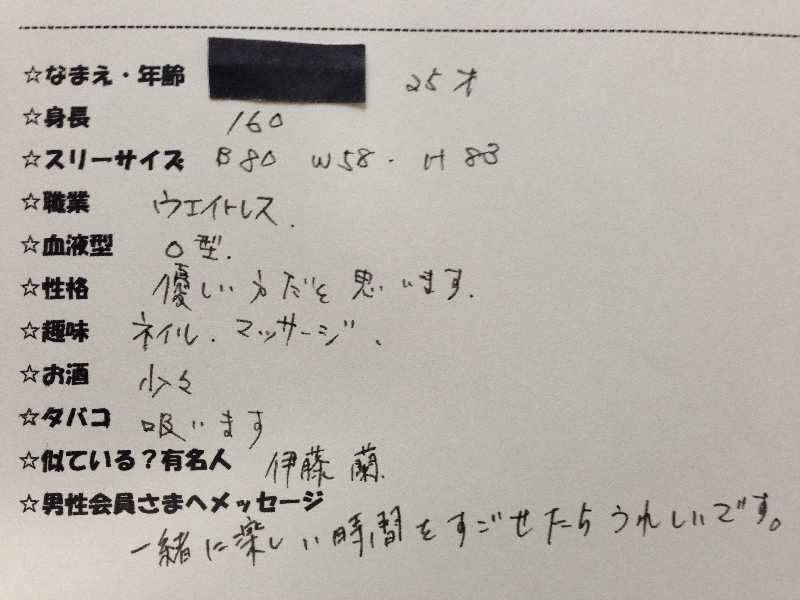 ☆なまえ・年齢 25才
☆身長 160
☆スリーサイズ B80 W58. H83
☆職業 ウエイトレス.
☆血液型 O型.
☆性格 優しい方だと思います.
☆趣味 ネイル.マッサージ、
☆お酒 少々
☆タバコ 吸います
☆似ている?有名人 伊藤 蘭
☆男性会員さまへメッセージ
一緒に楽しい時間をすごせたらうれしいです。